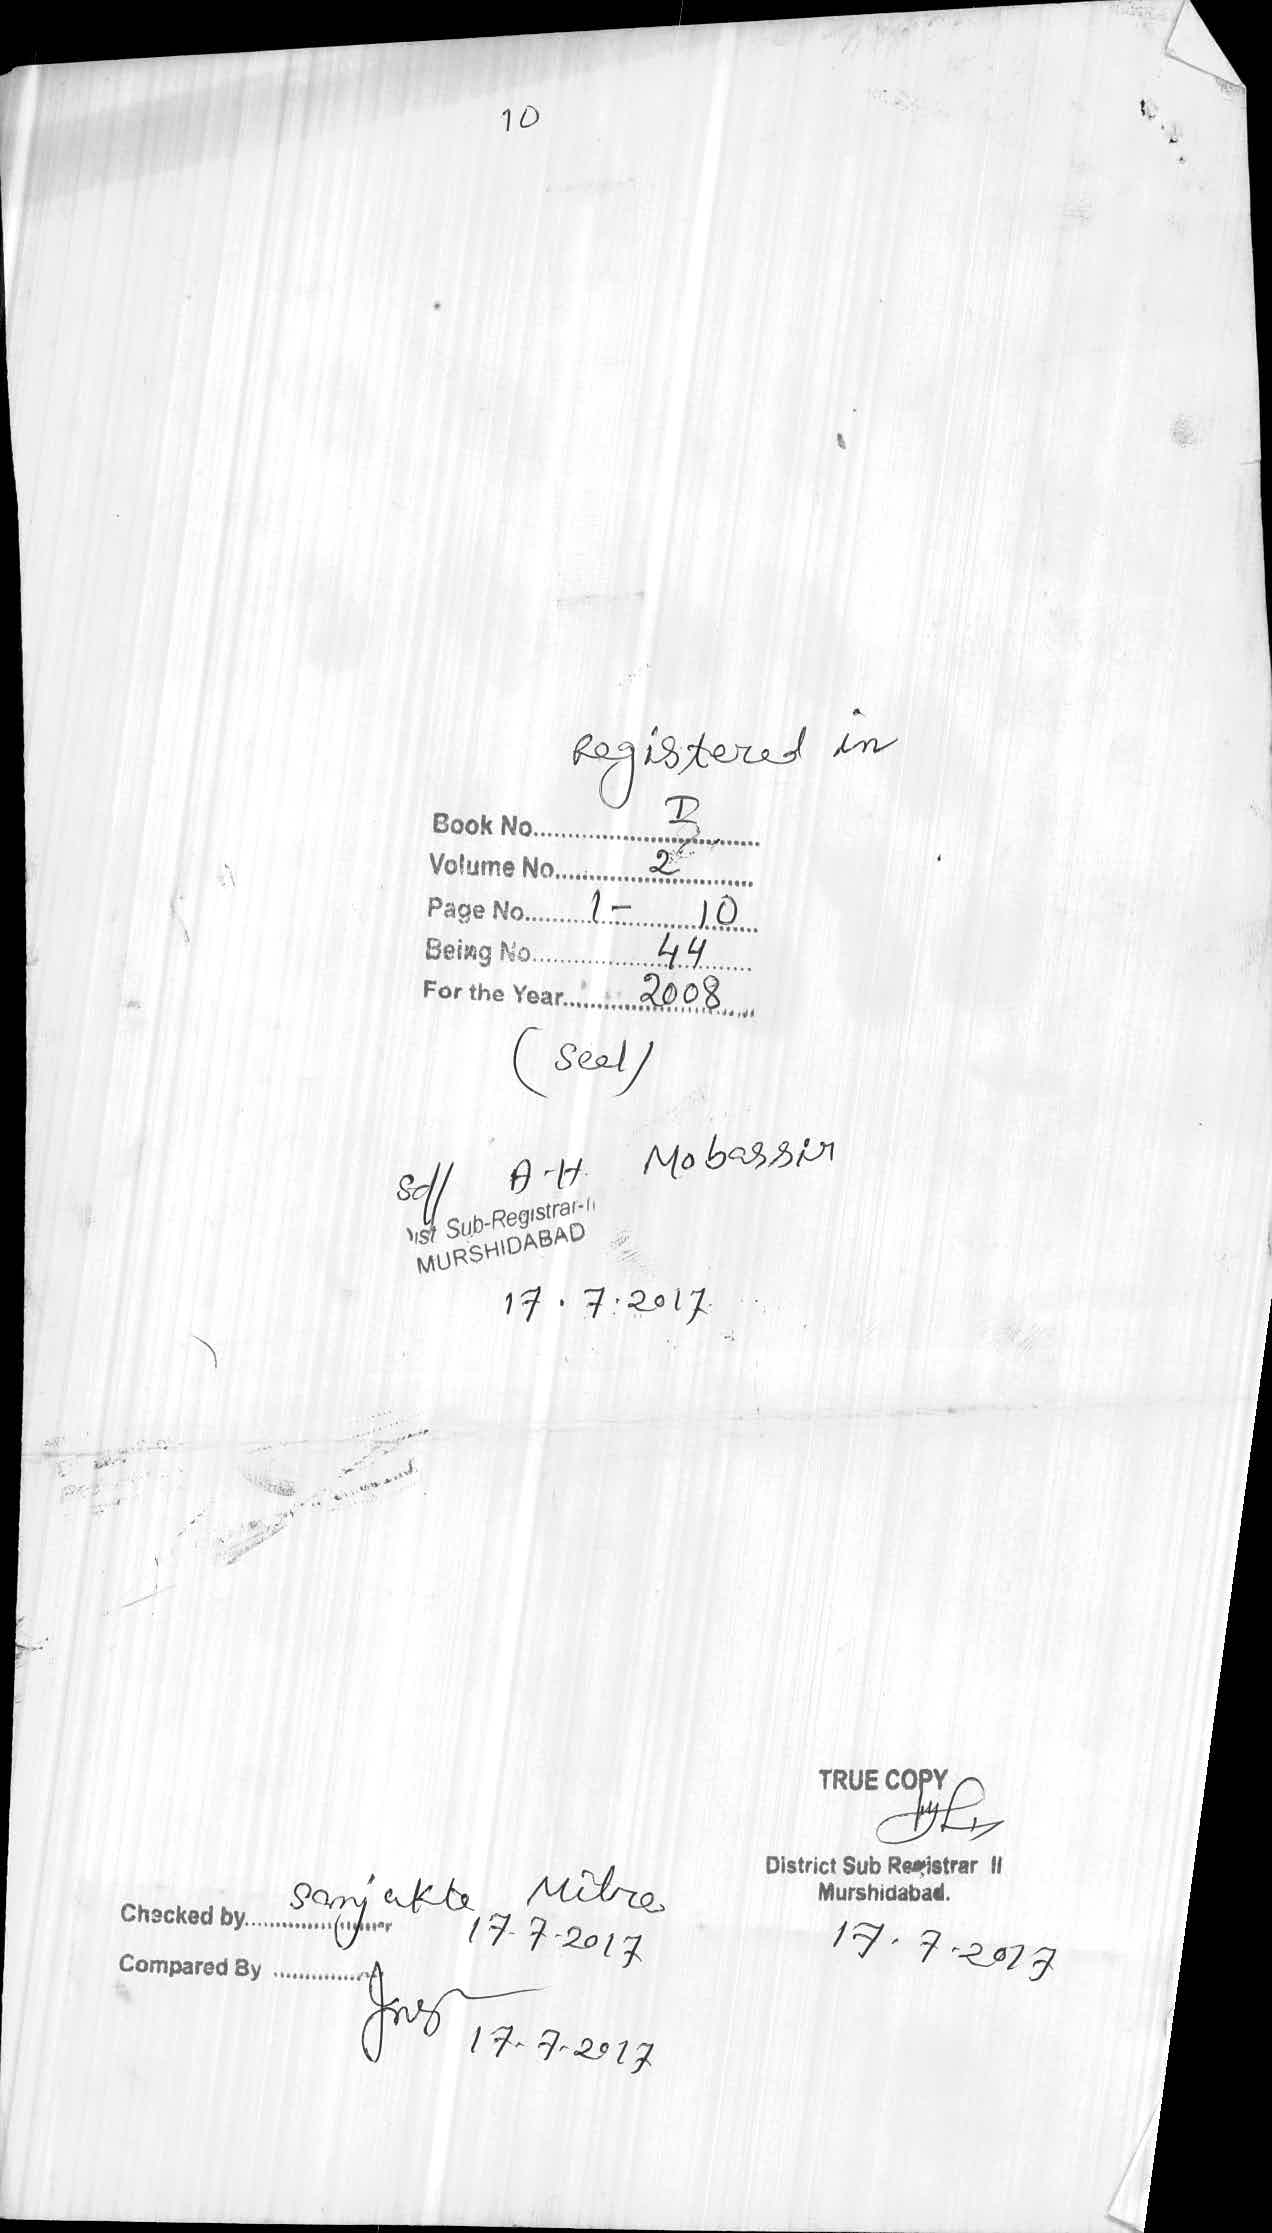 10
Registered in
Book No. I
Volume No. 2
Page No. 1 - 10
Being No. 44
For the Year 2008
(Seal)
Sd/ A.H. Mobassir
ist Sub-Registrar-II
MURSHIDABAD
17.7.2017
TRUE COPY
District Sub Registrar II
Murshidabad.
17.7.2017
Checked by Sanjukta Mitra
17.7.2017
Compared By
17.7.2017